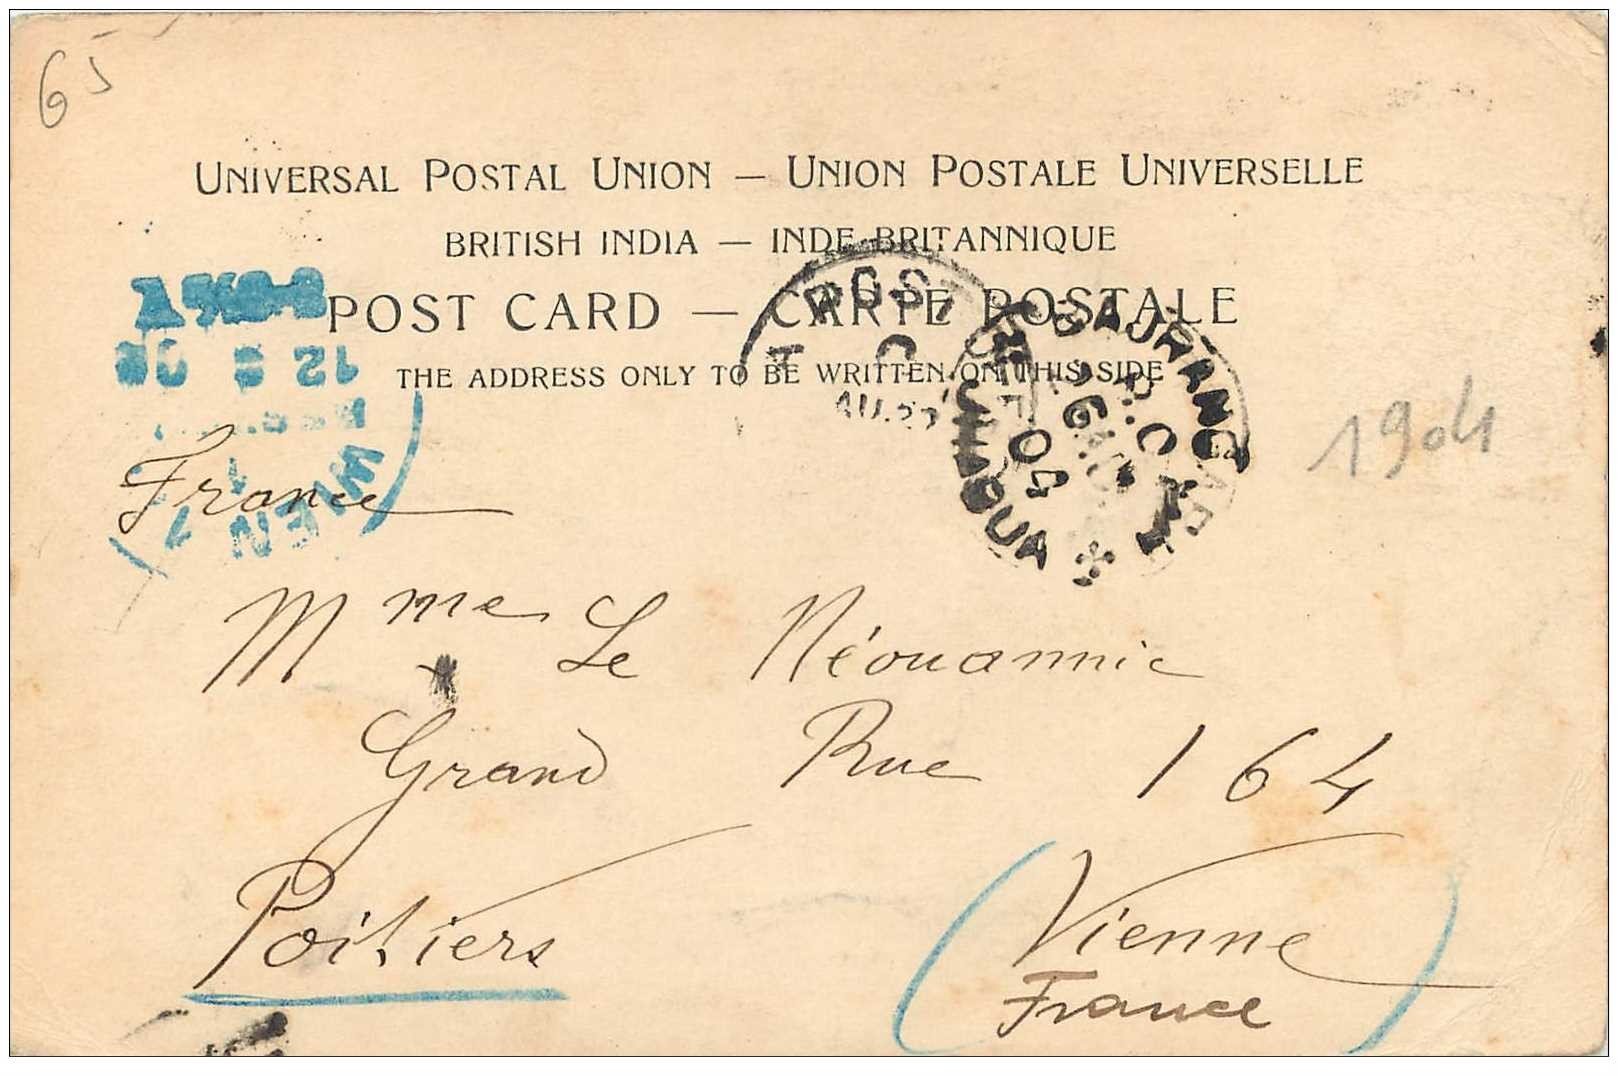 65
UNIVERSAL POSTAL UNION — UNION POSTALE UNIVERSELLE
BRITISH INDIA — INDE BRITANNIQUE
POST CARD — CARTE POSTALE
THE ADDRESS ONLY TO BE WRITTEN ON THIS SIDE
12
WIEN
04
1904
France
Mme Le Néouannic
Grand Rue 164
Poitiers
(Vienne)
France